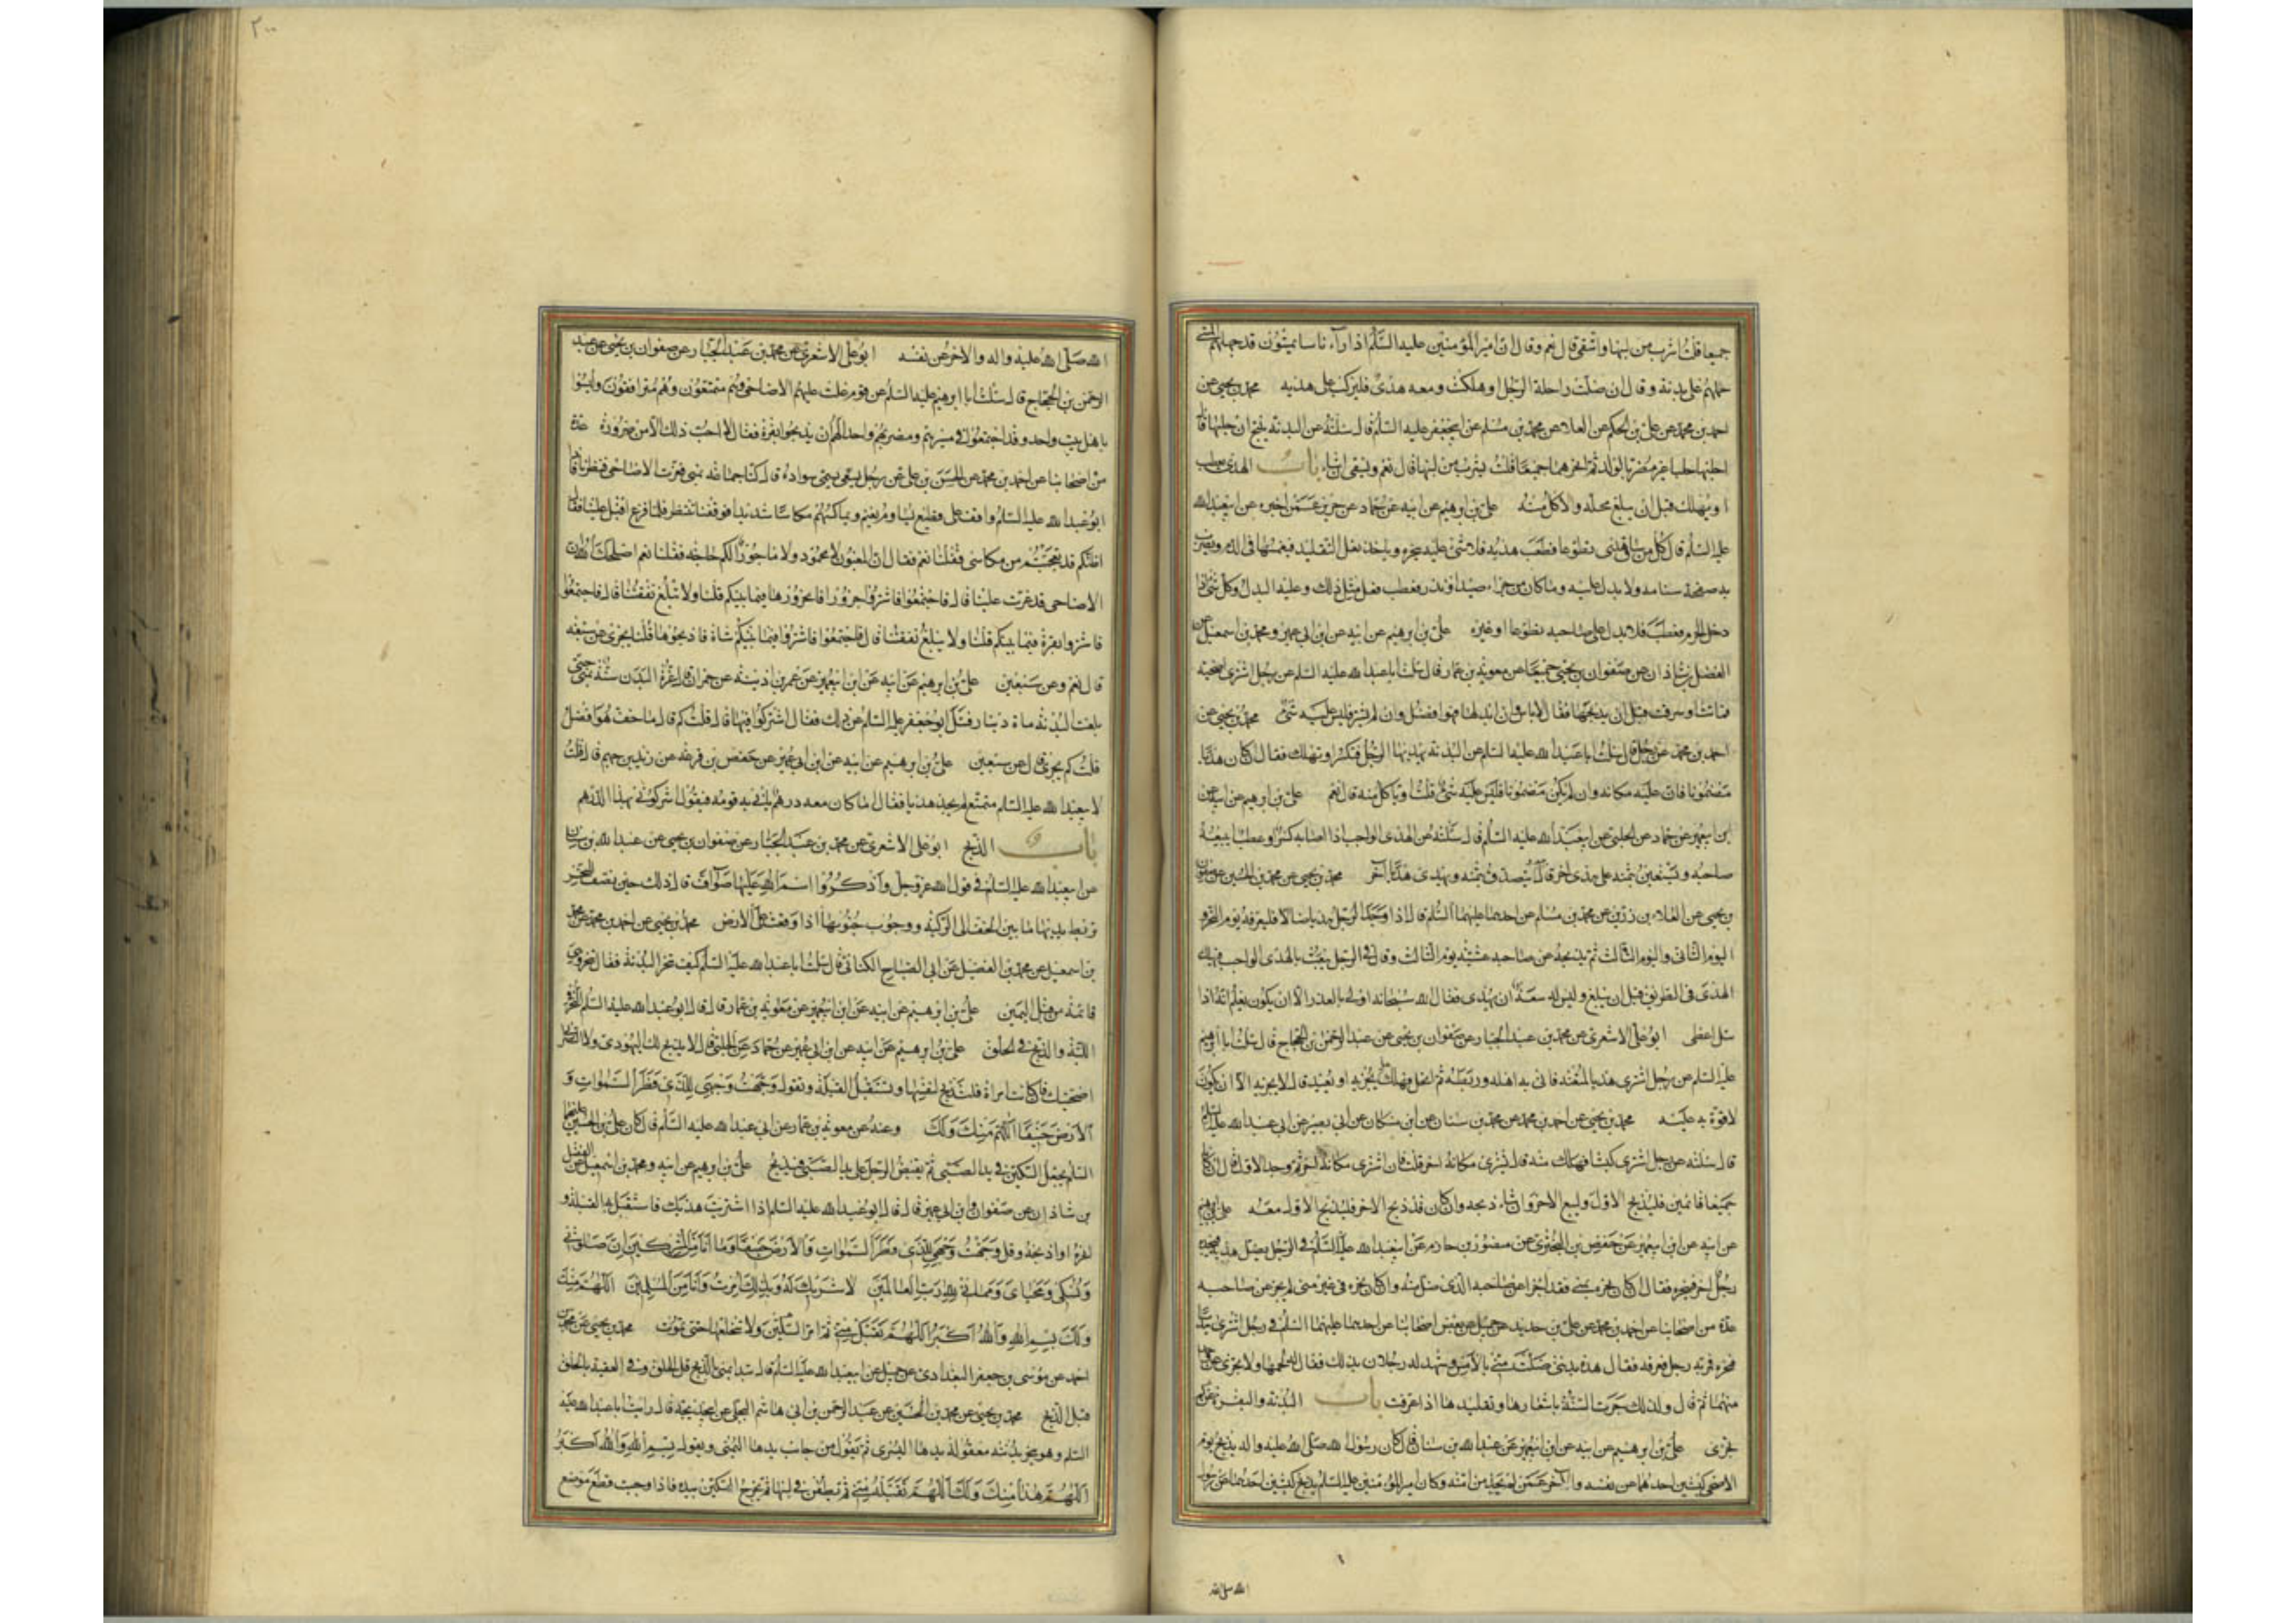 جميعا قلت اشرب من لبنها واسقي قال نعم وقال ان امير المؤمنين عليه السلم اذا رآء ناسا يمشون قد جهدهم المشي
حملهم على بدنة وقال ان ضلت راحلة الرجل او هلكت ومعه هدي فليركب على هديه محمد بن يحيى عن
احمد بن محمد عن علي بن الحكم عن العلا عن محمد بن مسلم عن ابيجعفر عليه السلم قال سئلته عن البدنة ينتج ان حلبها قال
احلبها حلبا غير مضر بالولد ثم انحرهما جميعا قلت يشرب من لبنها قال نعم ويسقي ان شاء باب الهدي يعطب
او يهلك قبل ان يبلغ محله والاكل منه علي بن ابرهيم عن ابيه عن حماد عن حريز عمن اخبره عن ابيعبدالله
عليه السلم قال كل من ساق هديا تطوعا فعطب هديه فلا شئ عليه ينحره وياخذ نعل التقليد فيغمسها في الدم ويضرب
به صفحة سنامه ولا بدل عليه وما كان من جزاء صيد او نذر فعطب فعل مثل ذلك وعليه البدل وكل شئ اذا
دخل الحرم فعطب فلا بدل على صاحبه تطوعا او غيره علي بن ابرهيم عن ابيه عن ابن ابي عمير ومحمد بن اسمعيل عن
الفضل بن شاذان عن صفوان بن يحيى جميعا عن معوية بن عمار قال سئلت اباعبدالله عليه السلم عن رجل اشترى اضحية
فماتت او سرقت قبل ان يذبحها فقال لاباس وان ابدلها فهو افضل وان لم يشتر فليس عليه شئ محمد بن يحيى عن
احمد بن محمد عن رجل قال سئلت اباعبدالله عليه السلم عن البدنة يهديها الرجل فتكسر او تهلك فقال ان كان هديا
مضمونا فان عليه مكانه وان لم يكن مضمونا فليس عليه شئ قلت اوياكل منه قال نعم علي بن ابرهيم عن ابيه عن
ابن ابيعمير عن حماد عن الحلبي عن ابيعبدالله عليه السلم قال سئلته عن الهدي الواجب اذا اصابه كسر او عطب ايبيعه
صاحبه ويستعين بثمنه على هدي اخر قال يتصدق بثمنه ويهدي هديا آخر محمد بن يحيى عن محمد بن الحسين عن صفوان
بن يحيى عن العلاء بن رزين عن محمد بن مسلم عن احدهما عليهما السلم قال اذا وجد الرجل هديا ضالا فليعرفه يوم النحر و
اليوم الثاني واليوم الثالث ثم يذبحه عن صاحبه عشية يوم الثالث وقال في الرجل يبعث بالهدي الواجب فيهلك
الهدي في الطريق قبل ان يبلغ وليس له سعة ان يهدي فقال الله سبحانه اولى بالعذر الا ان يكون يعلم انه اذا
سئل اعطى ابو علي الاشعري عن محمد بن عبدالجبار عن صفوان بن يحيى عن عبدالرحمن بن الحجاج قال سئلت ابا ابرهيم
عليه السلم عن رجل اشترى هديا لمتعته فاتى به اهله وربطه ثم انحل فهلك هل يجزيه او يعيد قال لا يجزيه الا ان يكون
لا قوة به عليه محمد بن يحيى عن احمد بن محمد عن محمد بن سنان عن ابن مسكان عن ابي بصير عن ابي عبدالله عليه السلم
قال سئلته عن رجل اشترى كبشا فهلك منه قال يشتري مكانه اخر قلت فان اشترى مكانه اخر ثم وجد الاول قال ان كانا
جميعا قائمين فليذبح الاول وليبع الاخر وان شاء ذبحه وان كان قد ذبح الاخر فليذبح الاول معه علي بن ابرهيم
عن ابيه عن ابن ابيعمير عن حفص بن البختري عن منصور بن حازم عن ابيعبدالله عليه السلم في الرجل يضل هديه فيجده
رجل اخر فينحره فقال ان كان نحره بمنى فقد اجزا عن صاحبه الذي ضل منه وان كان نحره في غير منى لم يجز عن صاحبه
عدة من اصحابنا عن احمد بن محمد عن علي بن حديد عن جميل عن بعض اصحابنا عن احدهما عليهما السلم في رجل اشترى هديا
فنحره فمر به رجل فعرفه فقال هذه بدنتي ضلت مني بالامس وشهد له رجلان بذلك فقال له لحمها ولا يجزي عن واحد
منهما ثم قال ولذلك جرت السنة باشعارها وتقليدها اذا عرفت باب البدنة والبقرة عن كم
تجزى علي بن ابرهيم عن ابيه عن ابن ابيعمير عن عبدالله بن سنان قال كان رسول الله صلى الله عليه واله يذبح يوم
الاضحى كبشين احدهما عن نفسه والآخر عمن لم يجد من امته وكان امير المؤمنين عليه السلم يذبح كبشين احدهما عن رسول
الله صلى الله
٢٠٠
الله صلى الله عليه واله والاخر عن نفسه ابو علي الاشعري عن محمد بن عبدالجبار عن صفوان بن يحيى عن عبد
الرحمن بن الحجاج قال سئلت ابا ابرهيم عليه السلم عن قوم غلت عليهم الاضاحي وهم متمتعون وهم مترافقون وليسوا
باهل بيت واحد وقد اجتمعوا في مسيرهم ومضربهم واحد الهم ان يذبحوا بقرة فقال لا احب ذلك الا من ضرورة عدة
من اصحابنا عن احمد بن محمد عن الحسين بن علي عن رجل يسمى سوادة قال كنا جماعة بمنى فعزت الاضاحي فنظرنا فاذا
ابو عبدالله عليه السلم واقف على قطيع يساوم بغنم ويماكسهم مكاسا شديدا فوقفنا ننتظر فلما فرغ اقبل علينا فقال
اظنكم قد تعجبتم من مكاسي فقلنا نعم فقال ان المغبون لا محمود ولا ماجور الكم حاجة فقلنا نعم اصلحك الله ان
الاضاحي قد عزت علينا قال فاجتمعوا فاشتروا جزورا فانحروها فيما بينكم قلنا ولا تبلغ نفقتنا قال فاجتمعوا
فاشتروا بقرة فيما بينكم قلنا ولا يبلغ نفقتنا قال فاجتمعوا فاشتروا فيما بينكم شاة فاذبحوها قلنا يجزي عن سبعة
قال نعم وعن سبعين علي بن ابرهيم عن ابيه عن ابن ابيعمير عن عمر بن اذينة عن حمران قال عزت البدن سنة بمنى حتى
بلغت البدنة مائة دينار فسئل ابوجعفر عليه السلم عن ذلك فقال اشتركوا فيها قال قلت كم قال ما خف هو افضل
قلت كم يجزي قال عن سبعين علي بن ابرهيم عن ابيه عن ابن ابي عمير عن حفص بن قرعة عن زيد بن جهم قال قلت
لابيعبدالله عليه السلم متمتع لم يجد هديا فقال اما كان معه درهم ياتي به قومه فيقول اشركوني بهذا الدرهم
باب الذبح ابو علي الاشعري عن محمد بن عبدالجبار عن صفوان بن يحيى عن عبدالله بن سنان
عن ابيعبدالله عليه السلم في قول الله عز وجل واذكروا اسم الله عليها صوآف قال ذلك حين تصف للنحر
تربط يديها ما بين الخف الى الركبة ووجوب جنوبها اذا وقعت على الارض محمد بن يحيى عن احمد بن محمد عن محمد
بن اسمعيل عن محمد بن الفضيل عن ابي الصباح الكناني قال سئلت اباعبدالله عليه السلم كيف تنحر البدنة فقال تنحر وهي
قائمة من قبل اليمين علي بن ابرهيم عن ابيه عن ابن ابيعمير عن معوية بن عمار قال قال ابو عبدالله عليه السلم النحر في
اللبة والذبح في الحلق علي بن ابرهيم عن ابيه عن ابن ابي عمير عن حماد عن الحلبي قال لا يذبح لك اليهودي ولا النصراني
اضحيتك فان كانت امراة فلتذبح لنفسها وتستقبل القبلة وتقول وجهت وجهي للذي فطر السموات و
الارض حنيفا اللهم منك ولك وعنه عن معوية بن عمار عن ابي عبدالله عليه السلم قال كان علي بن الحسين عليهما
السلم يجعل السكين في يد الصبي ثم يقبض الرجل على يد الصبي فيذبح علي بن ابرهيم عن ابيه ومحمد بن اسمعيل عن الفضل
بن شاذان عن صفوان وابن ابي عمير قال قال ابو عبدالله عليه السلم اذا اشتريت هديك فاستقبل به القبلة و
انحره او اذبحه وقل وجهت وجهي للذي فطر السموات والارض حنيفا وما انا من المشركين ان صلوتي
ونسكي ومحياي ومماتي لله رب العالمين لا شريك له وبذلك امرت وانا من المسلمين اللهم منك
ولك بسم الله والله اكبر اللهم تقبل مني ثم امر السكين ولا تنخعها حتى تموت محمد بن يحيى عن محمد بن
احمد عن موسى بن جعفر البغدادي عن جميل عن ابيعبدالله عليه السلم قال تبدا بمنى بالذبح قبل الحلق وفي العقيقة بالحلق
قبل الذبح محمد بن يحيى عن محمد بن الحسين عن عبدالرحمن بن ابي هاشم البجلي عن ابيخديجة قال رايت اباعبدالله عليه
السلم وهو ينحر بدنته معقولة يدها اليسرى ثم يقوم من جانب يدها اليمنى ويقول بسم الله والله اكبر
اللهم هذا منك ولك اللهم تقبله مني ثم يطعن في لبتها ثم يخرج السكين بيده فاذا وجبت قطع موضع